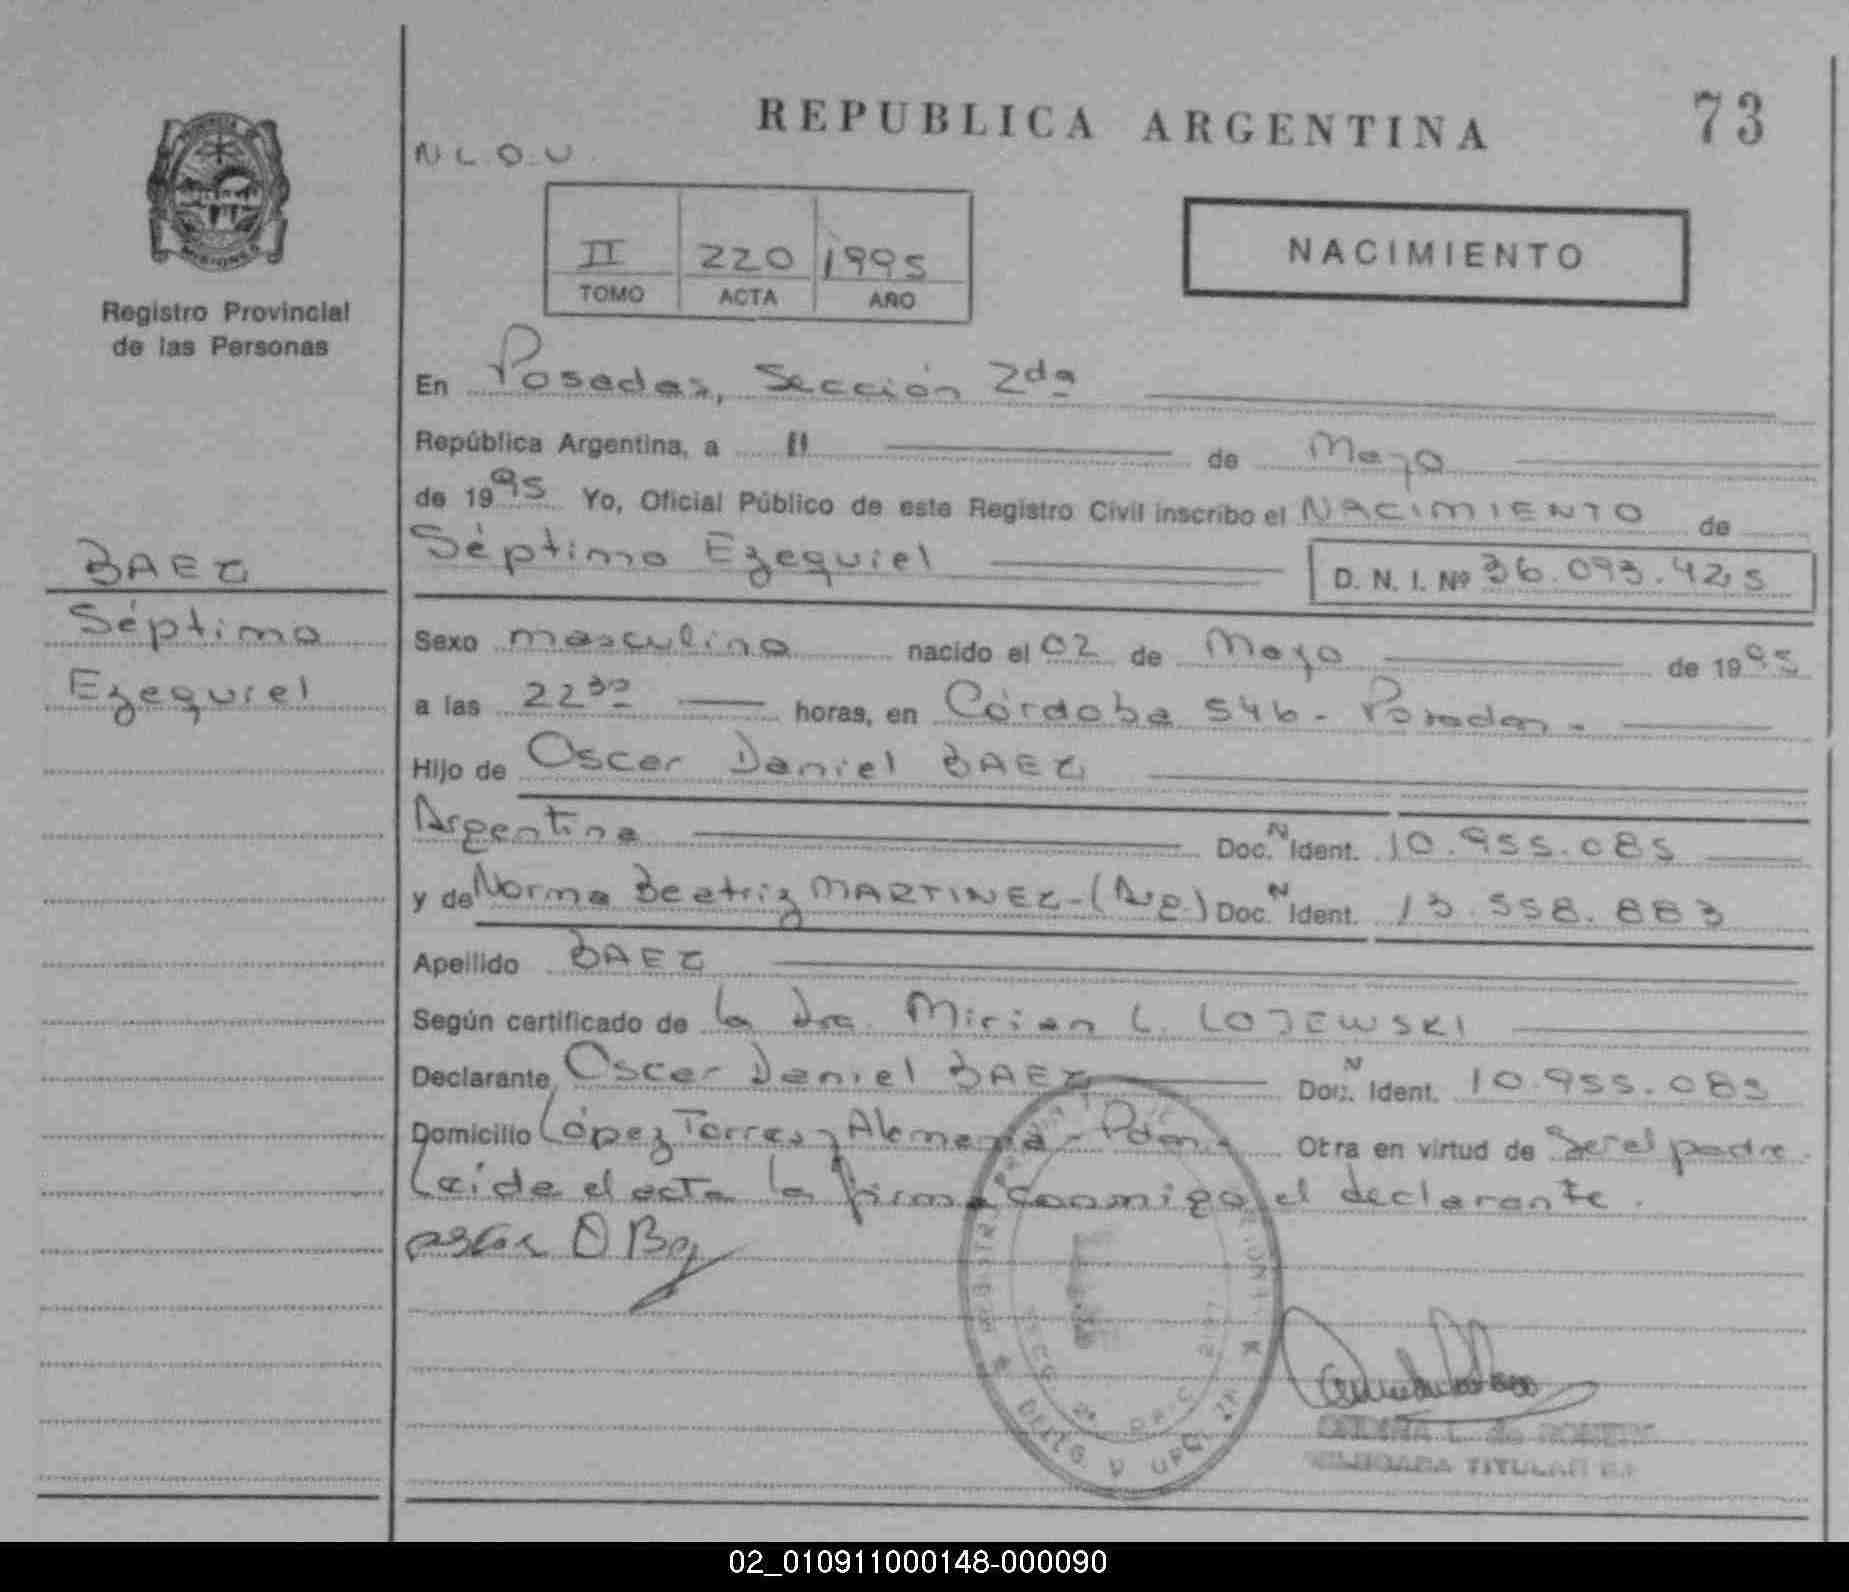 REPUBLICA ARGENTINA
73
N L. O. U.
II 220 1995
TOMO ACTA AÑO
NACIMIENTO
MISIONES
Registro Provincial
de las Personas
En Posadas, Sección 2da
República Argentina, a 11 de Mayo
de 1995 Yo, Oficial Público de este Registro Civil inscribo el NACIMIENTO de
Séptimo Ezequiel D. N. I. Nº 36.093.425
BAEZ
Séptimo
Ezequiel
Sexo masculino nacido el 02 de Mayo de 1995
a las 22 30 horas, en Córdoba 546 - Posadas -
Hijo de Oscar Daniel BAEZ
Argentina Doc. N Ident. 10.955.085
y de Norma Beatriz MARTINEZ - (Arg.) Doc. N Ident. 13.558.883
Apellido BAEZ
Según certificado de la Dra. Mirian L. LOJEWSKI
Declarante Oscar Daniel BAEZ Doc. N Ident. 10.955.085
Domicilio López Torres y Alemania - Pdas. Otra en virtud de Ser el padre.
Leída el acta la firma conmigo el declarante.
L. de
TITULAR
02_010911000148-000090